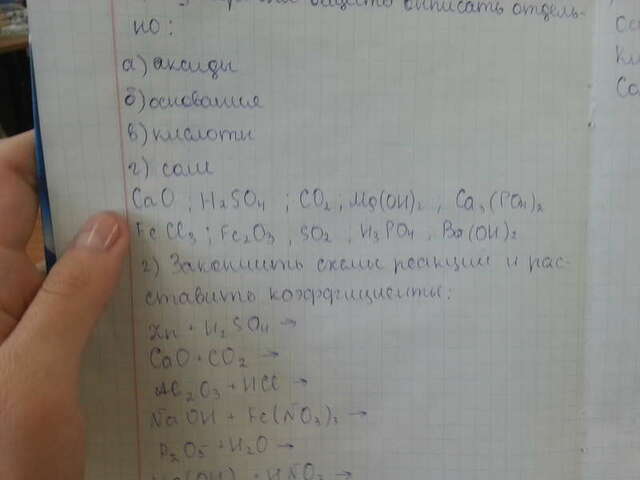 вещества выписать отдель-
но:
а) оксиды
б) основания
в) кислоты
г) соли
CaO ; H2SO4 ; CO2 ; Mg(OH)2 , Ca3(PO4)2
FeCl3 ; Fe2O3 , SO2 , H3PO4 , Ba(OH)2
2) Закончить схемы реакций и рас-
ставить коэффициенты:
Zn + H2SO4 →
CaO + CO2 →
Al2O3 + HCl →
NaOH + Fe(NO3)3 →
P2O5 + H2O →
(OH) + HNO3 →